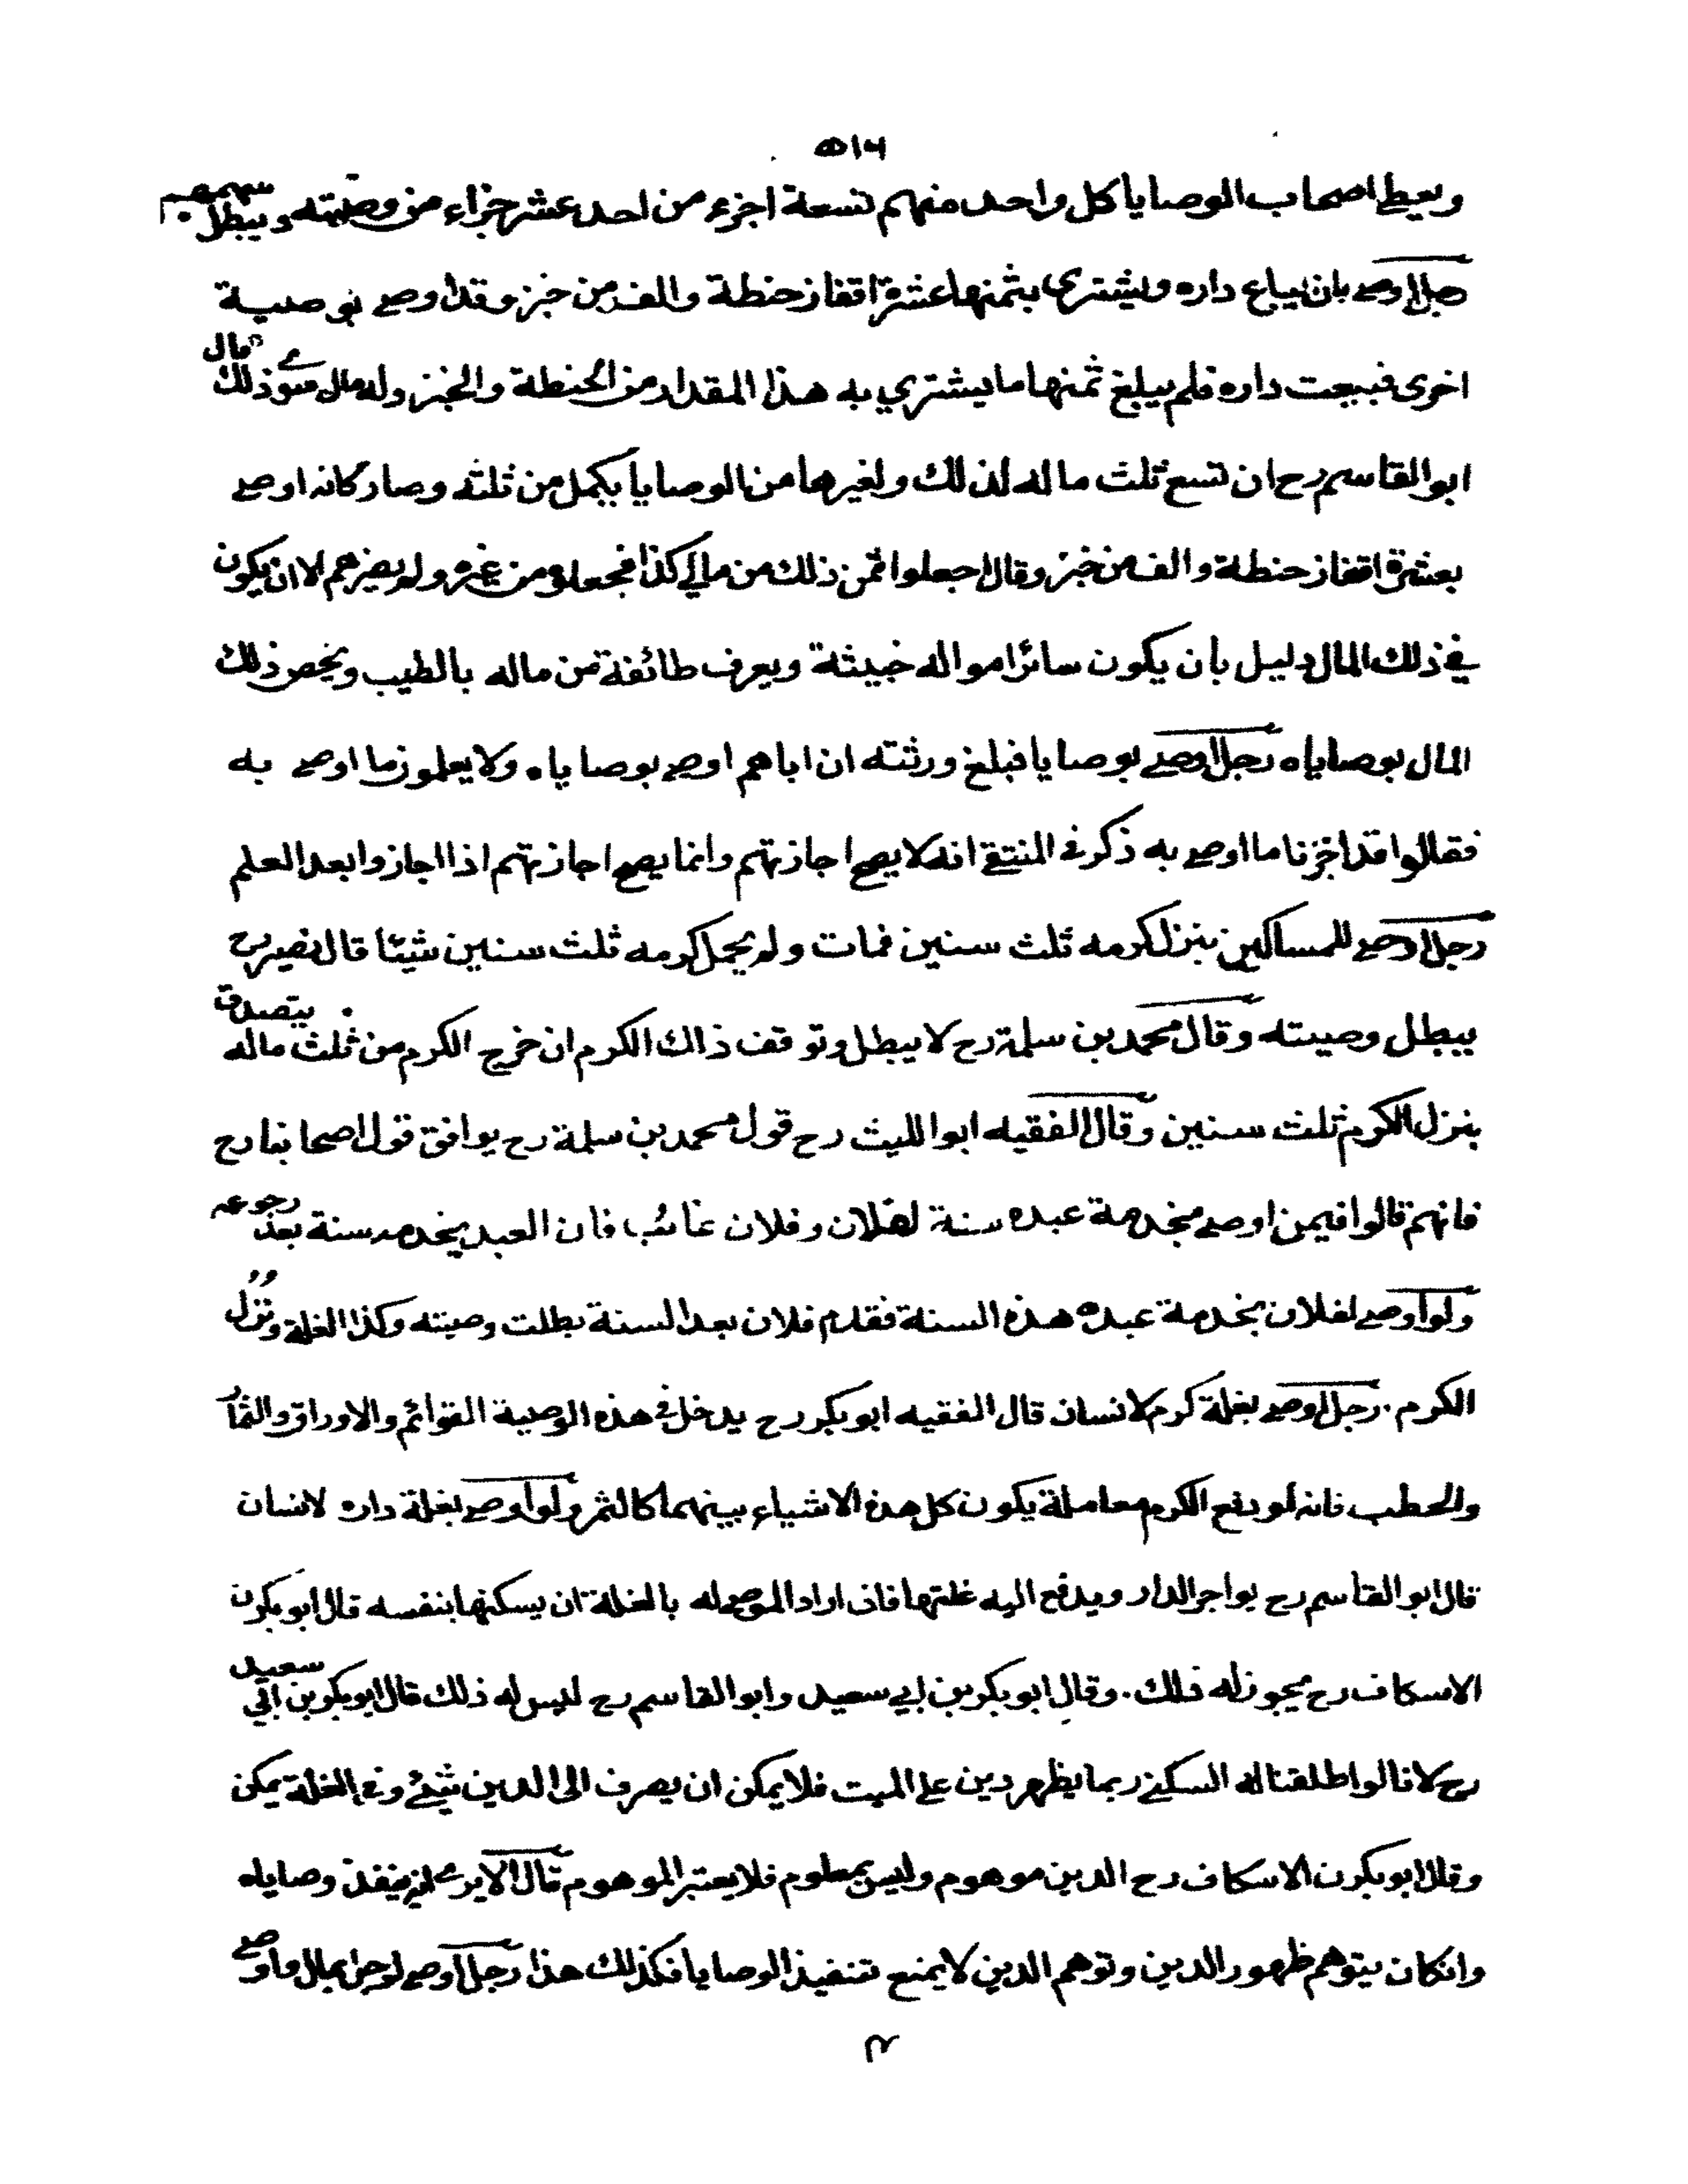 ٥١٦
ويعطي اصحاب الوصايا كل واحد منهم تسعة اجزء من احد عشر جزاء من وصيته ويبطل سهمه
رجل اوصى بان يباع داره ويشتري بثمنها عشرة اقفاز حنطة والف من خبز وقد اوصى بوصية
اخرى فبيعت داره فلم يبلغ ثمنها ما يشتري به هذا المقدار من الحنطة والخبز وله مال سوى ذلك قال
ابو القاسم رح ان تسع ثلث ماله لذلك ولغيرها من الوصايا يكمل من ثلثه وصار كانه اوصى
بعشرة اقفاز حنطة والف من خبز وقال اجعلوا ثمن ذلك من مالي كذا فجعلوه من غيره ولم يضرهم الا ان يكون
في ذلك المال دليل بان يكون سائر امواله خبيثة ويعرف طائفة من ماله بالطيب ويخص ذلك
المال بوصاياه رجل اوصى بوصايا فبلغ ورثته ان اباهم اوصى بوصاياه ولا يعلمون ما اوصى به
فقالوا قد اجزنا ما اوصى به ذكر في المنتقى انه لا يصح اجازتهم وانما يصح اجازتهم اذا اجازوا بعد العلم
رجل اوصى للمساكين بنزل كرمه ثلث سنين فمات ولم يحمل كرمه ثلث سنين شيئا قال نصير رح
يبطل وصيته وقال محمد بن سلمة رح لا يبطل وتوقف ذالك الكرم ان خرج الكرم من ثلث ماله يتصدق
بنزل الكرم ثلث سنين وقال الفقيه ابو الليث رح قول محمد بن سلمة رح يوافق قول اصحابنا رح
فانهم قالوا فيمن اوصى بخدمة عبده سنة لفلان وفلان غائب فان العبد يخدمه سنة بعد رجوعه
ولو اوصى لفلان بخدمة عبده هذه السنة فقدم فلان بعد السنة بطلت وصيته وكذا الغلة ونزل
الكرم . رجل اوصى بغلة كرم لانسان قال الفقيه ابو بكر رح يدخل في هذه الوصية القوائم والاوراق والثمار
والحطب فانه لو دفع الكرم معاملة يكون كل هذه الاشياء بينهما كالثمر ولو اوصى بغلة داره لانسان
قال ابو القاسم رح يواجر الدار ويدفع اليه غلتها فان اراد الموصى له بالغلة ان يسكنها بنفسه قال ابو بكر ن
الاسكاف رح يجوز له ذلك . وقال ابو بكر بن ابي سعيد وابو القاسم رح ليس له ذلك قال ابو بكر بن ابي سعيد
رح لانا لو اطلقنا له السكنى ربما يظهر دين على الميت فلا يمكن ان يصرف الى الدين شيء وفي الغلة يمكن
وقال ابو بكر ن الاسكاف رح الدين موهوم وليس بمعلوم فلا يعتبر الموهوم قال الا يرى انه ينفذ وصاياه
وانكان يتوهم ظهور الدين وتوهم الدين لا يمنع تنفيذ الوصايا فكذلك هذا رجل اوصى لرجل بمال واوصى